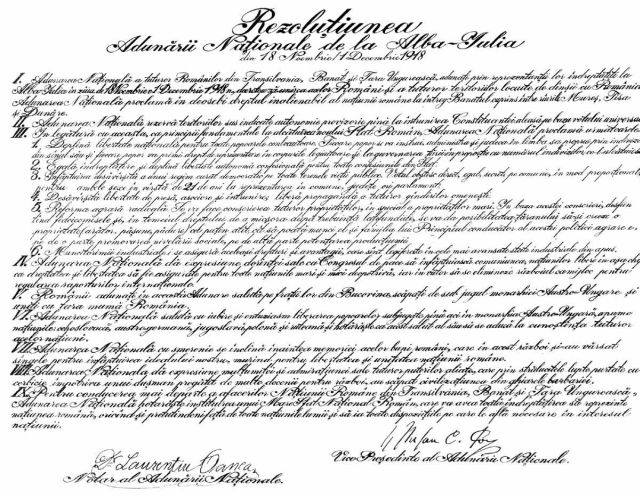 Rezoluțiunea
Adunării Naționale de la Alba-Yulia
din 18 Noembrie/1 Decembrie 1918
I. Adunarea Națională a tuturor Românilor din Transilvania, Banat și Țara Ungurească, adunați prin reprezentanții lor îndreptățiți la
Alba-Yulia în ziua de 18 Noembrie/1 Decembrie 1918, decretează unirea acelor Români și a tuturor teritoriilor locuite de dînșii cu România.
Adunarea Națională proclamă în deosebi dreptul inalienabil al națiunii române la întreg Banatul cuprins între rîurile Mureș, Tisa
și Dunăre.
II. Adunarea Națională rezervă teritoriilor sus indicate autonomie provizorie până la întrunirea Constituantei alese pe baza votului universal.
III. În legătură cu aceasta, ca principii fundamentale la alcătuirea noului Stat Român, Adunarea Națională proclamă următoarele:
1. Deplină libertate națională pentru toate popoarele conlocuitoare. Fiecare popor se va instrui, administra și judeca în limba sa proprie prin indivizi
din sînul său și fiecare popor va primi drept de reprezentare în corpurile legiuitoare și la guvernarea țării în proporție cu numărul indivizilor ce-l alcătuiesc.
2. Egală îndreptățire și deplină libertate autonomă confesională pentru toate confesiunile din Stat.
3. Înfăptuirea desăvîrșită a unui regim curat democratic pe toate terenele vieții publice. Votul obștesc, direct, egal, secret, pe comune, în mod proporțional,
pentru ambele sexe, în vîrstă de 21 de ani la reprezentarea în comune, județe ori parlament.
4. Desăvîrșită libertate de presă, asociere și întrunire; libera propagandă a tuturor gîndurilor omenești.
5. Reforma agrară radicală. Se va face conscrierea tuturor proprietăților, în special a proprietăților mari. În baza acestei conscrieri, desființînd
fideicomisele și în temeiul dreptului de a micșora după trebuință latifundiile, se va da posibilitatea țăranului să-și creeze o
proprietate (arător, pășune, pădure) cel puțin atît cît să poată munci el și familia lui. Principiul conducător al acestei politice agrare e
pe de o parte promovarea nivelării sociale, pe de altă parte potențarea producțiunii.
6. Muncitorimei industriale i se asigură aceleași drepturi și avantagii, cari sînt legiferate în cele mai avansate state industriale din apus.
IV. Adunarea Națională dă expresiune dorinței sale ca Congresul de pace să înfăptuiască comuniunea națiunilor libere în așa chip,
ca dreptatea și libertatea să fie asigurate pentru toate națiunile mari și mici deopotrivă, iar în viitor să se elimineze războiul ca mijloc pentru
regularea raporturilor internaționale.
V. Românii adunați în această Adunare salută pe frații lor din Bucovina, scăpați de sub jugul monarhiei Austro-Ungare și
uniți cu țara mumă România.
VI. Adunarea Națională salută cu iubire și entuziasm liberarea popoarelor subjugate până aci în monarhia Austro-Ungară, anume
națiunile cehoslovacă, austrogermană, jugoslavă, polonă și ruteană și hotărăște ca acest salut al său să se aducă la cunoștința tuturor
acelor națiuni.
VII. Adunarea Națională cu smerenie se închină înaintea memoriei acelor bravi români, care în acest război și-au vărsat
sîngele pentru înfăptuirea idealului nostru, murind pentru libertatea și unitatea națiunii române.
VIII. Adunarea Națională dă expresiune mulțumirei și admirațiunei sale tuturor puterilor aliate, care prin strălucitele lupte purtate cu
cerbicie împotriva unui dușman pregătit de multe decenii pentru război, au scăpat civilizațiunea din ghiarele barbariei.
IX. Pentru conducerea mai departe a afacerilor Națiunii Române din Transilvania, Banat și Țara Ungurească,
Adunarea Națională hotărăște instituirea unui Mare Sfat Național Român, care va avea toată îndreptățirea să reprezinte
națiunea română oricînd și pretutindeni față de toate națiunile lumii și să ia toate dispozițiile pe care le află necesare în interesul
națiunii.
Dr. Laurențiu Oanea
Notar al Adunării Naționale.
Ștefan C. Pop
Vice Președinte al Adunării Naționale.